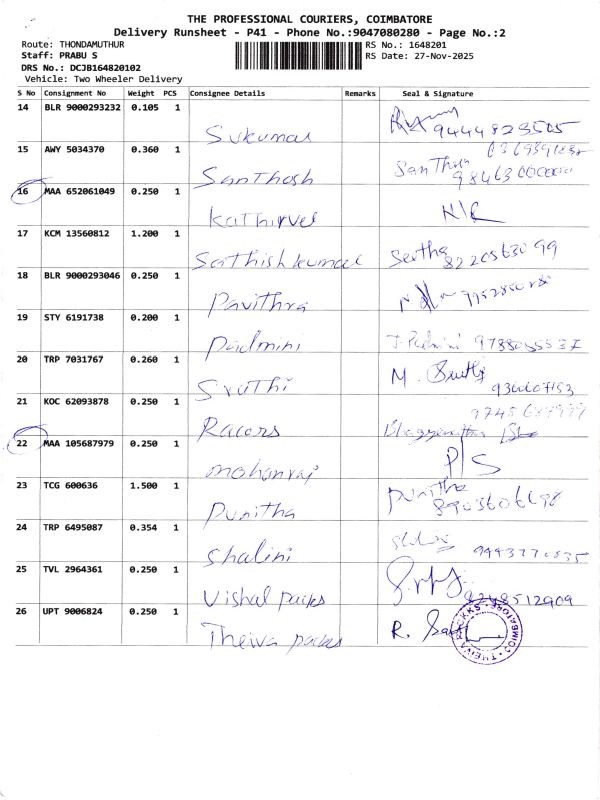 THE PROFESSIONAL COURIERS, COIMBATORE
Delivery Runsheet - P41 - Phone No.:9047080280 - Page No.:2
Route: THONDAMUTHUR RS No.: 1648201
Staff: PRABU S RS Date: 27-Nov-2025
DRS No.: DCJB164820102
Vehicle: Two Wheeler Delivery
S No Consignment No Weight PCS Consignee Details Remarks Seal & Signature
14 BLR 9000293232 0.105 1
Sukumar 9444823505
15 AWY 5034370 0.360 1
Santhosh Santhosh
16 MAA 652061049 0.250 1
Kathirvel N/R
17 KCM 13560812 1.200 1
Sathishkumar
18 BLR 9000293046 0.250 1
Pavithra
19 STY 6191738 0.200 1
Padmini
20 TRP 7031767 0.260 1
Sruthi M.
21 KOC 62093878 0.250 1
Racers
22 MAA 105687979 0.250 1
mohanraj P/S
23 TCG 600636 1.500 1
Punitha Punitha
24 TRP 6495087 0.354 1
Shalini
25 TVL 2964361 0.250 1
Vishal packs 9248512909
26 UPT 9006824 0.250 1
Theiva packs R.